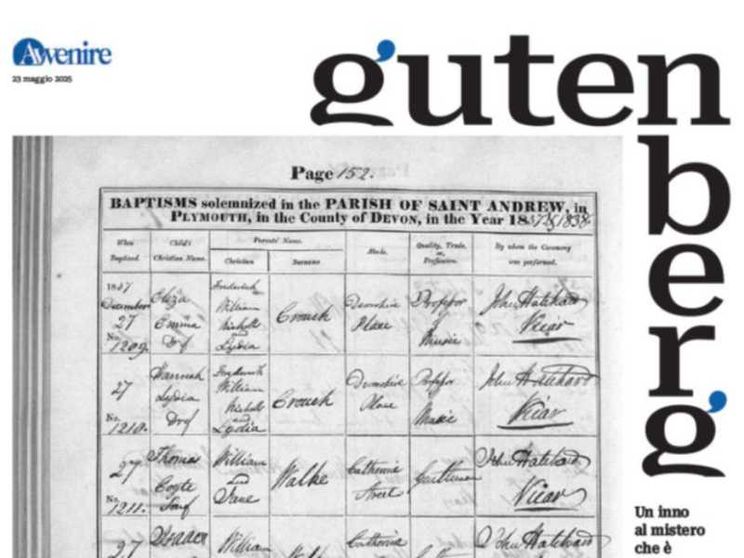 Avvenire
23 maggio 2025
gutenberg
Page 152.
BAPTISMS solemnized in the PARISH OF SAINT ANDREW, in
PLYMOUTH, in the County of DEVON, in the Year 18
When Baptized.
Child's Christian Name.
Parents' Name.
Christian
Surname
Abode.
Quality, Trade, or, Profession.
By whom the Ceremony was performed.
December
27
No. 1209.
Eliza
Emma
William
and
Lydia
Crouch
Devonshire
Place
Professor
of
Music
John Hatchard
Vicar
27
No. 1210.
Hannah
Lydia
William
and
Lydia
Crouch
Devonshire
Place
Professor
Music
John Hatchard
Vicar
27
No. 1211.
Thomas
William
and
Jane
Walke
Catherine
Street
Gentleman
John Hatchard
Vicar
27
William
Catherine
John Hatchard
Un inno
al mistero
che è